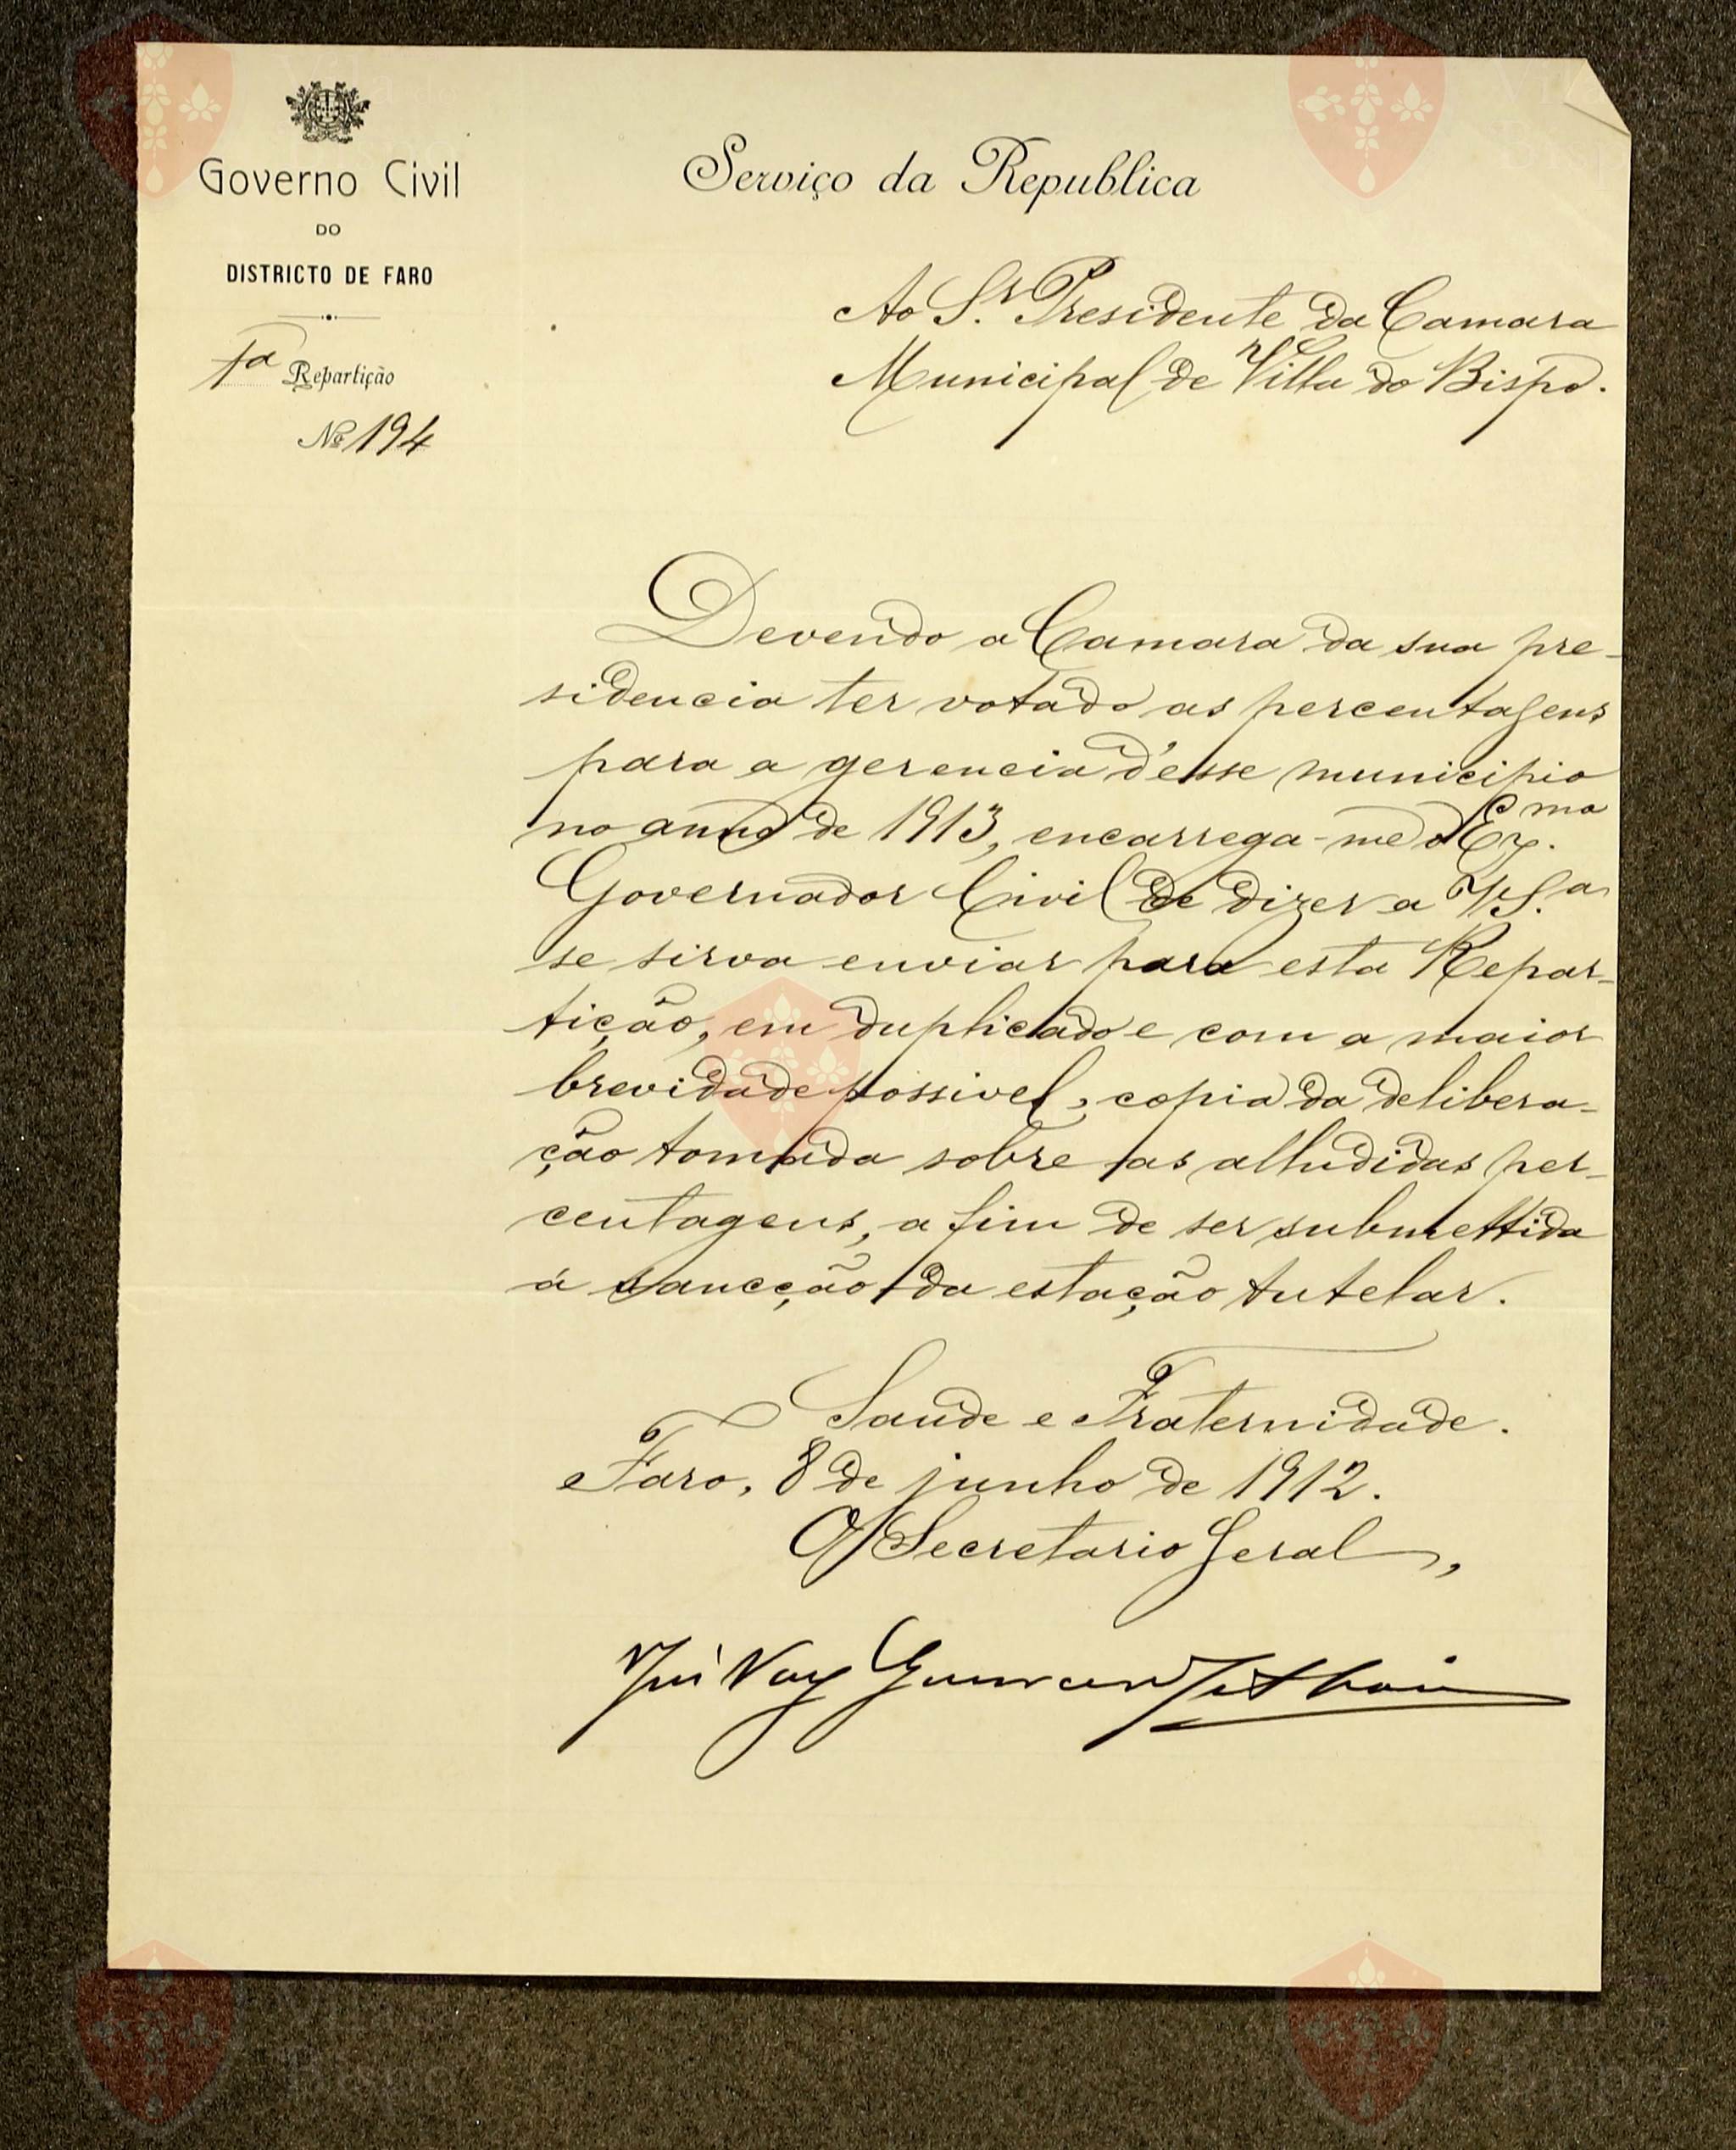 Governo Civil
DO
DISTRICTO DE FARO
1ª Repartição
Nº 194
Serviço da Republica
Ao Sr. Presidente da Camara
Municipal de Villa do Bispo.
Devendo a Camara da sua pre-
sidencia ter votado as percentagens
para a gerencia d'esse municipio
no anno de 1913, encarrega-me o Exmo.
Governador Civil de dizer a V. S.a
se sirva enviar para esta Repar-
tição, em duplicado e com a maior
brevidade possivel, copia da delibera-
ção tomada sobre as alludidas per-
centagens, a fim de ser submettida
á sancção da estação tutelar.
Saude e Fraternidade.
Faro, 8 de junho de 1912.
O Secretario Geral,
Vila do
Bispo